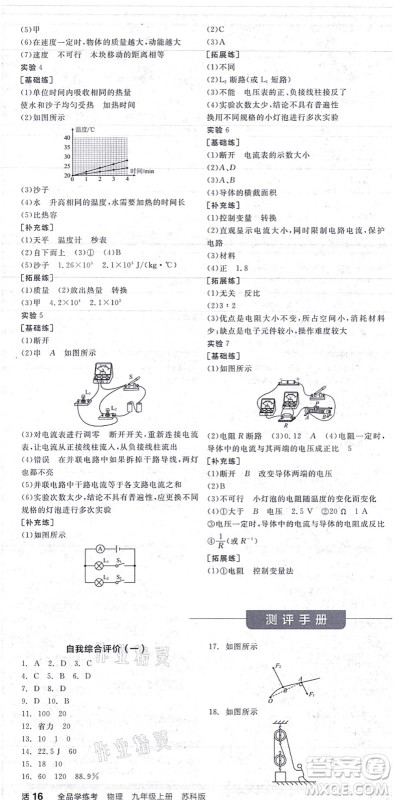 (5)甲
(6)在速度一定时,物体的质量越大,动能越大
(7)速度 不可行 木块移动的距离相等
实验 4
[基础练]
(1)单位时间内吸收热量相同 转换
使水和沙子均匀受热 加热时间
(2)如图所示
温度/℃
40
35
30
25
20
0 1 2 3 4 时间/min
(3)沙子
(4)水 升高相同的温度,水需要的时间长
[补充练]
(1)天平 温度计 秒表
(2)自下而上 (3)① (4)B
[拓展练]
(1)质量 (2)放出热量 转换
实验 5
[基础练]
(1)断开
(2)串 A 如图所示
L₁
L₂
S
(3)对电流表进行调零 断开开关,重新连接电流
表,让电流从正接线柱流入,从负接线柱流出
(4)错误 在并联电路中如果拆掉干路导线,两灯
也都不亮
(5)并联电路中干路电流等于各支路电流之和
(6)实验次数太少,结论不具有普遍性,应更换不同规
格的灯泡进行多次实验
[补充练]
(1)如图所示
A
L₁ S₁
L₂ S₂
(2)C
(3)A
[拓展练]
(1)不同
(2)L₂ 断路(或 L₁ 短路)
(3)不能 电压表的正、负接线柱接反了
(4)实验次数太少,结论不具有普遍性
换用不同规格的小灯泡多次实验
实验 6
[基础练]
(1)断开 电流表的示数大小
(2)A、D
(3)A、B
(4)导体的横截面积
[补充练]
(1)控制变量 转换
(3)材料
(4)正 1.8
[拓展练]
(1)无关 反比
(2)3∶2
实验 7
[基础练]
(1)如图所示
R
(2)电阻 R 断路 (3)0.12 A (4)电阻一定时,
导体中的电流与其两端的电压成正比 5
[补充练]
(1)断开 B 改变导体两端的电压
(2)B
(3)不可行 小灯泡的电阻随温度的变化而变化
(4)①大于 ②B 大 2.5 V ③20 Ω 1 A
(5)电压一定时,导体中的电流与导体的电阻成反比
(6)1/R (或 R⁻¹)
[拓展练]
(1)①电阻 控制变量法
测评手册
自我综合评价(一)
9. C
11. 100 20
13. 20
14. 200
15. 10 5
16. 120 88.9%
17. 如图所示
F₁
F₂
O
18. 如图所示
活 16 全品学练考 物理 九年级上册 苏科版
作业精灵